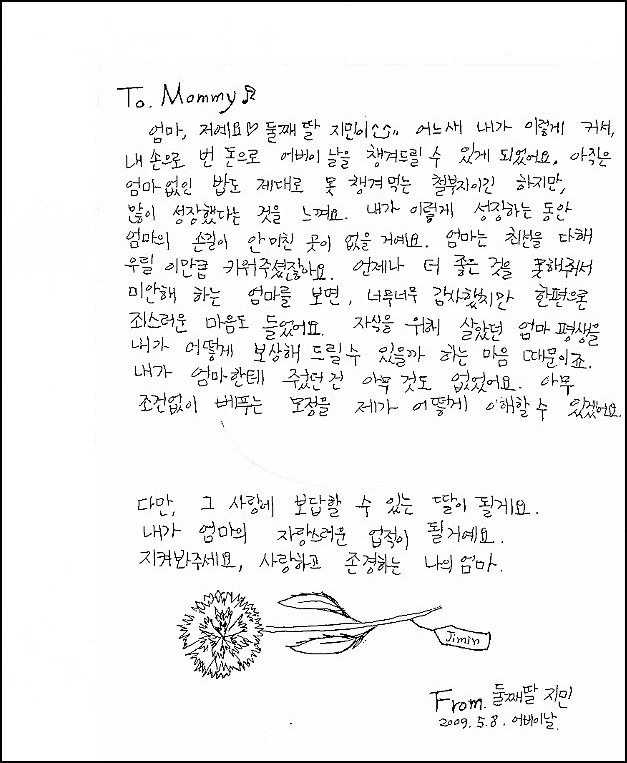 To. Mommy♬
엄마, 저예요♡ 둘째 딸 지민이^^.. 어느새 내가 이렇게 커서,
내 손으로 번 돈으로 어버이 날을 챙겨드릴 수 있게 되었어요. 아직은
엄마 없인 밥도 제대로 못 챙겨 먹는 철부지이긴 하지만,
많이 성장했다는 것을 느껴요. 내가 이렇게 성장하는 동안
엄마의 손길이 안 미친 곳이 없을 거예요. 엄마는 최선을 다해
우릴 이만큼 키워주셨잖아요. 언제나 더 좋은 것을 못해줘서
미안해 하는 엄마를 보면, 너무너무 감사했지만 한편으론
죄스러운 마음도 들었어요. 자식을 위해 살았던 엄마 평생을
내가 어떻게 보상해 드릴 수 있을까 하는 마음 때문이죠.
내가 엄마한테 주었던 건 아무 것도 없었어요. 아무
조건없이 베푸는 모정을 제가 어떻게 이해할 수 있겠어요.
다만, 그 사랑에 보답할 수 있는 딸이 될게요.
내가 엄마의 자랑스러운 업적이 될거예요.
지켜봐주세요, 사랑하고 존경하는 나의 엄마.
Jimin
From. 둘째딸 지민
2009. 5. 8. 어버이날